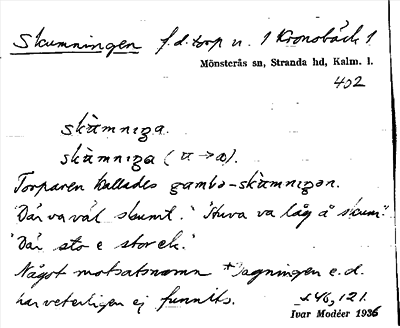 Skumningen f.d. torp u. 1 Kronobäck 1
Mönsterås sn, Stranda hd, Kalm. l.
402
skùmnıŋa.
skùmnıŋa (u → ɷ).
Torparen kallades gambə-skùmnıŋən.
"Där va väl skumt." "Huva va låg å skum."
"Där sto e stor ek."
Något motsatsnamn *Dagningen e.d.
har veterligen ej funnits.
s. 46, 121.
Ivar Modéer 1936